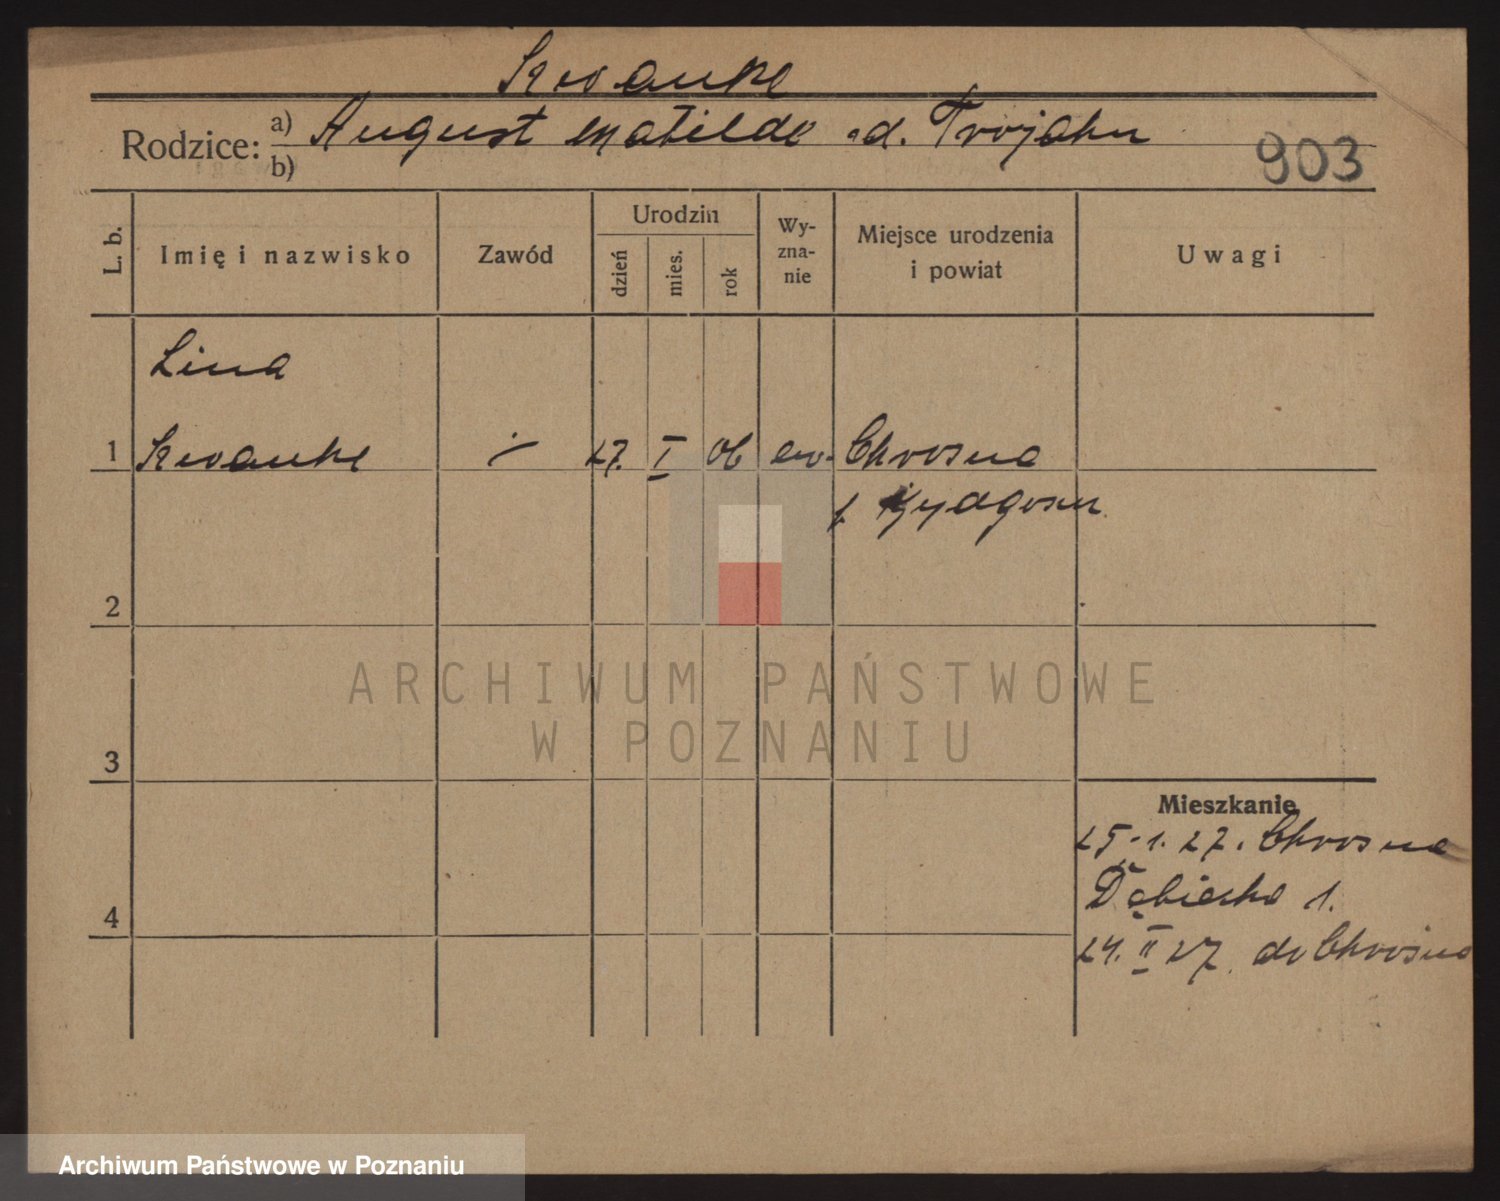 Kwanke
Rodzice: a) August Matilde d. Trojahn
b)
903
L. b.
Imię i nazwisko
Zawód
Urodzin
dzień
mies.
rok
Wy-
zna-
nie
Miejsce urodzenia
i powiat
Uwagi
Lina
1 Kwanke 27. I 06 ew. Chrosna
p. Bydgoszcz
2
3
4
Mieszkanie
25. 1. 27. Chrosna
1.
24. II 27. do Chrosna
ARCHIWUM PAŃSTWOWE
W POZNANIU
Archiwum Państwowe w Poznaniu